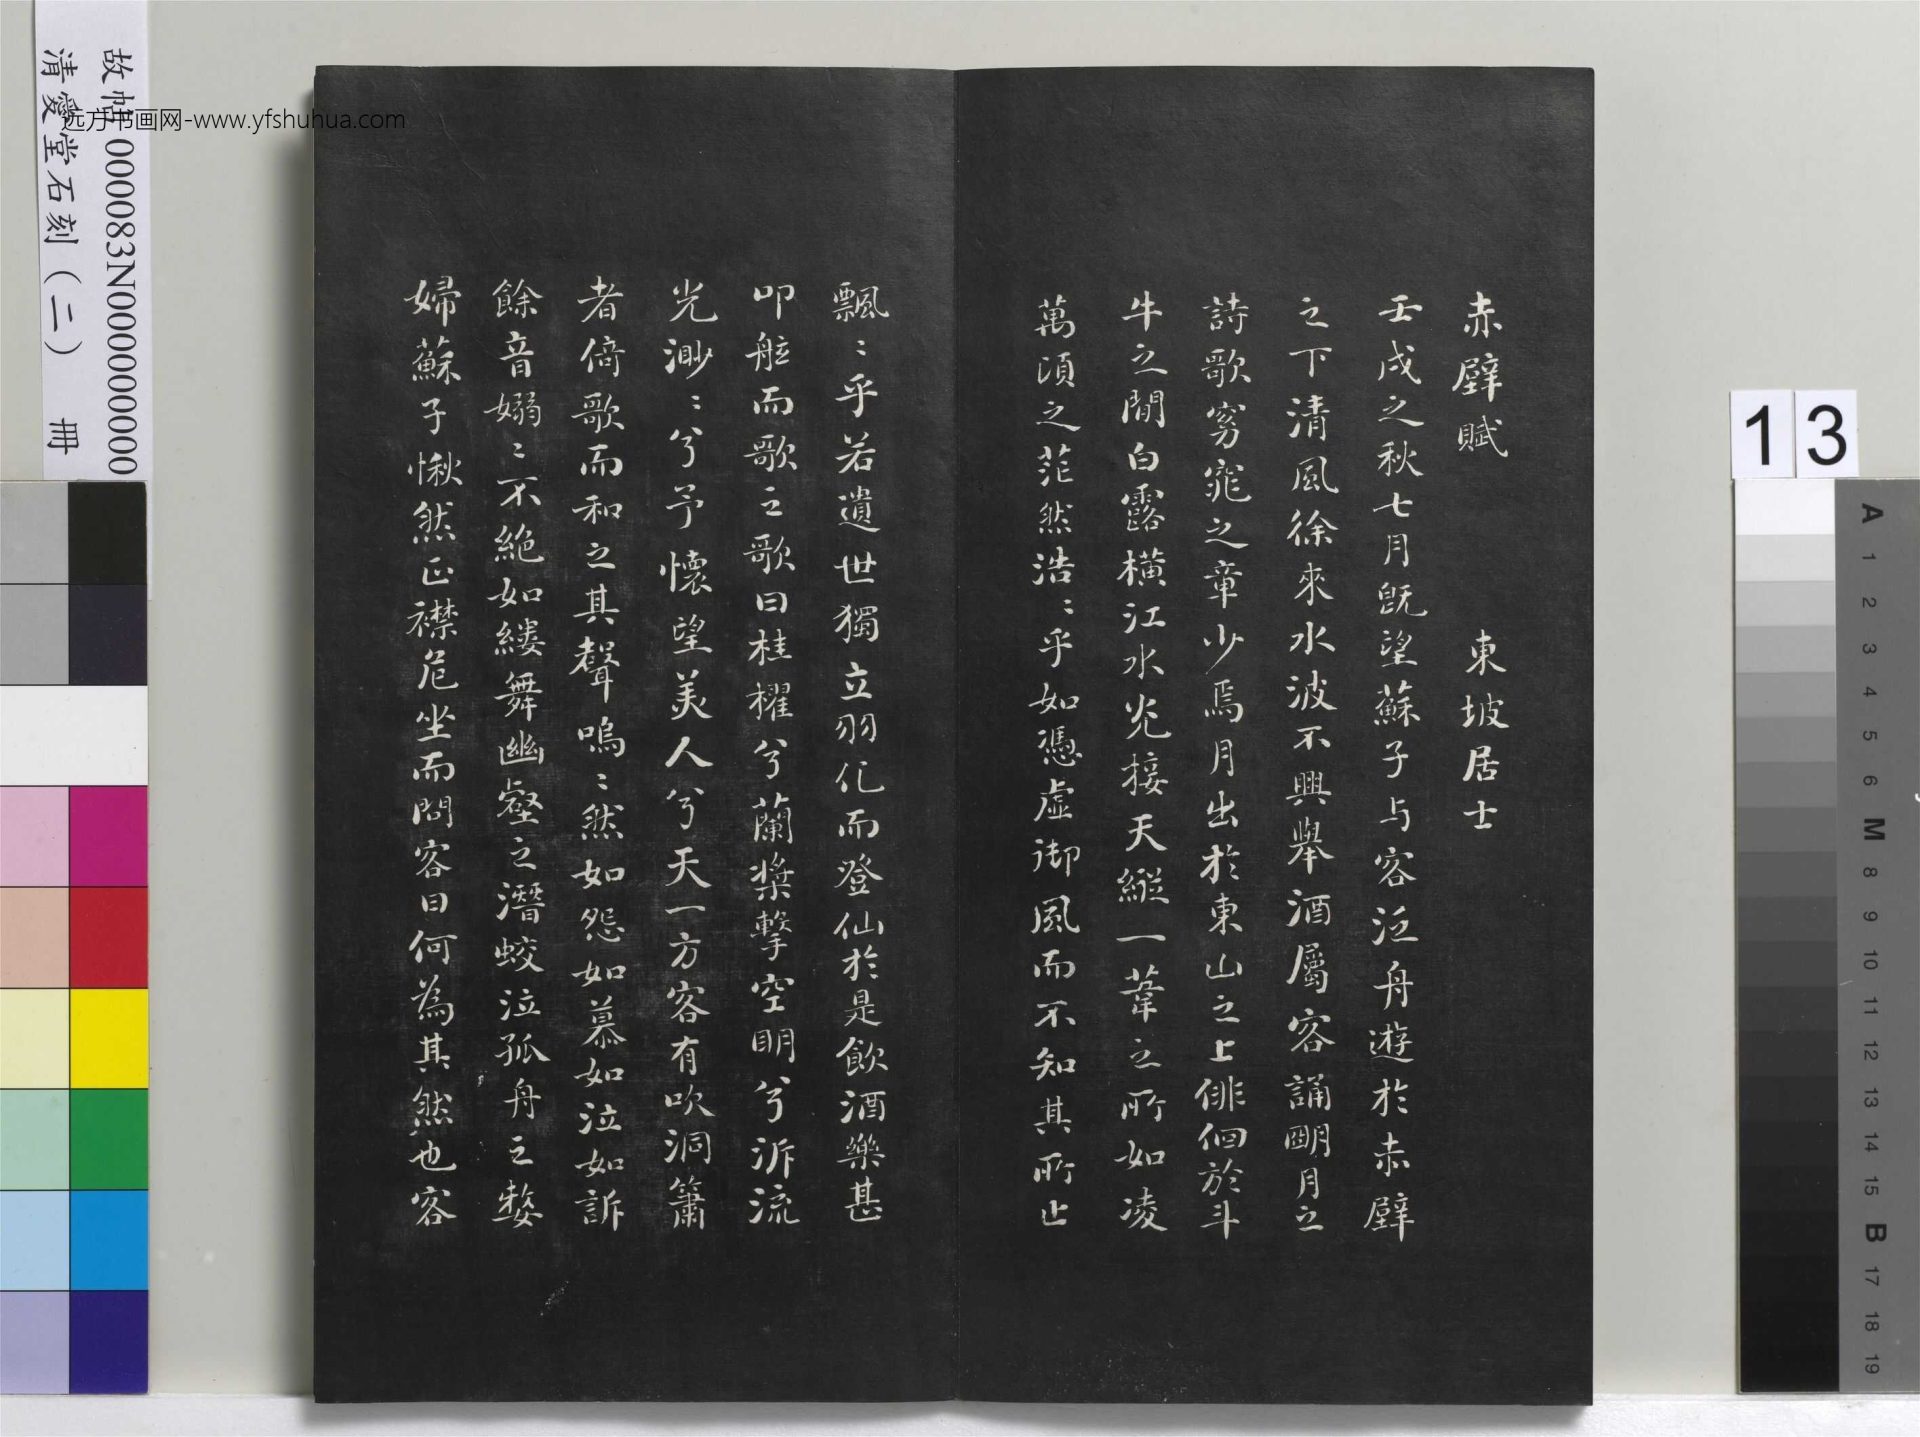 赤壁賦 東坡居士
壬戌之秋七月既望蘇子与客泛舟遊於赤壁
之下清風徐來水波不興舉酒屬客誦明月之
詩歌窈窕之章少焉月出於東山之上徘徊於斗
牛之間白露橫江水光接天縱一葦之所如凌
萬頃之茫然浩〻乎如憑虛御風而不知其所止
飄〻乎若遺世獨立羽化而登仙於是飲酒樂甚
叩舷而歌之歌曰桂櫂兮蘭槳擊空明兮泝流
光渺〻兮予懷望美人兮天一方客有吹洞簫
者倚歌而和之其聲嗚〻然如怨如慕如泣如訴
餘音嫋〻不絕如縷舞幽壑之潛蛟泣孤舟之嫠
婦蘇子愀然正襟危坐而問客曰何為其然也客
故帖 000083N000000000
清愛堂石刻(二) 冊
远方书画网-www.yfshuhua.com
13
A 1 2 3 4 5 6 M 8 9 10 11 12 13 14 15 B 17 18 19